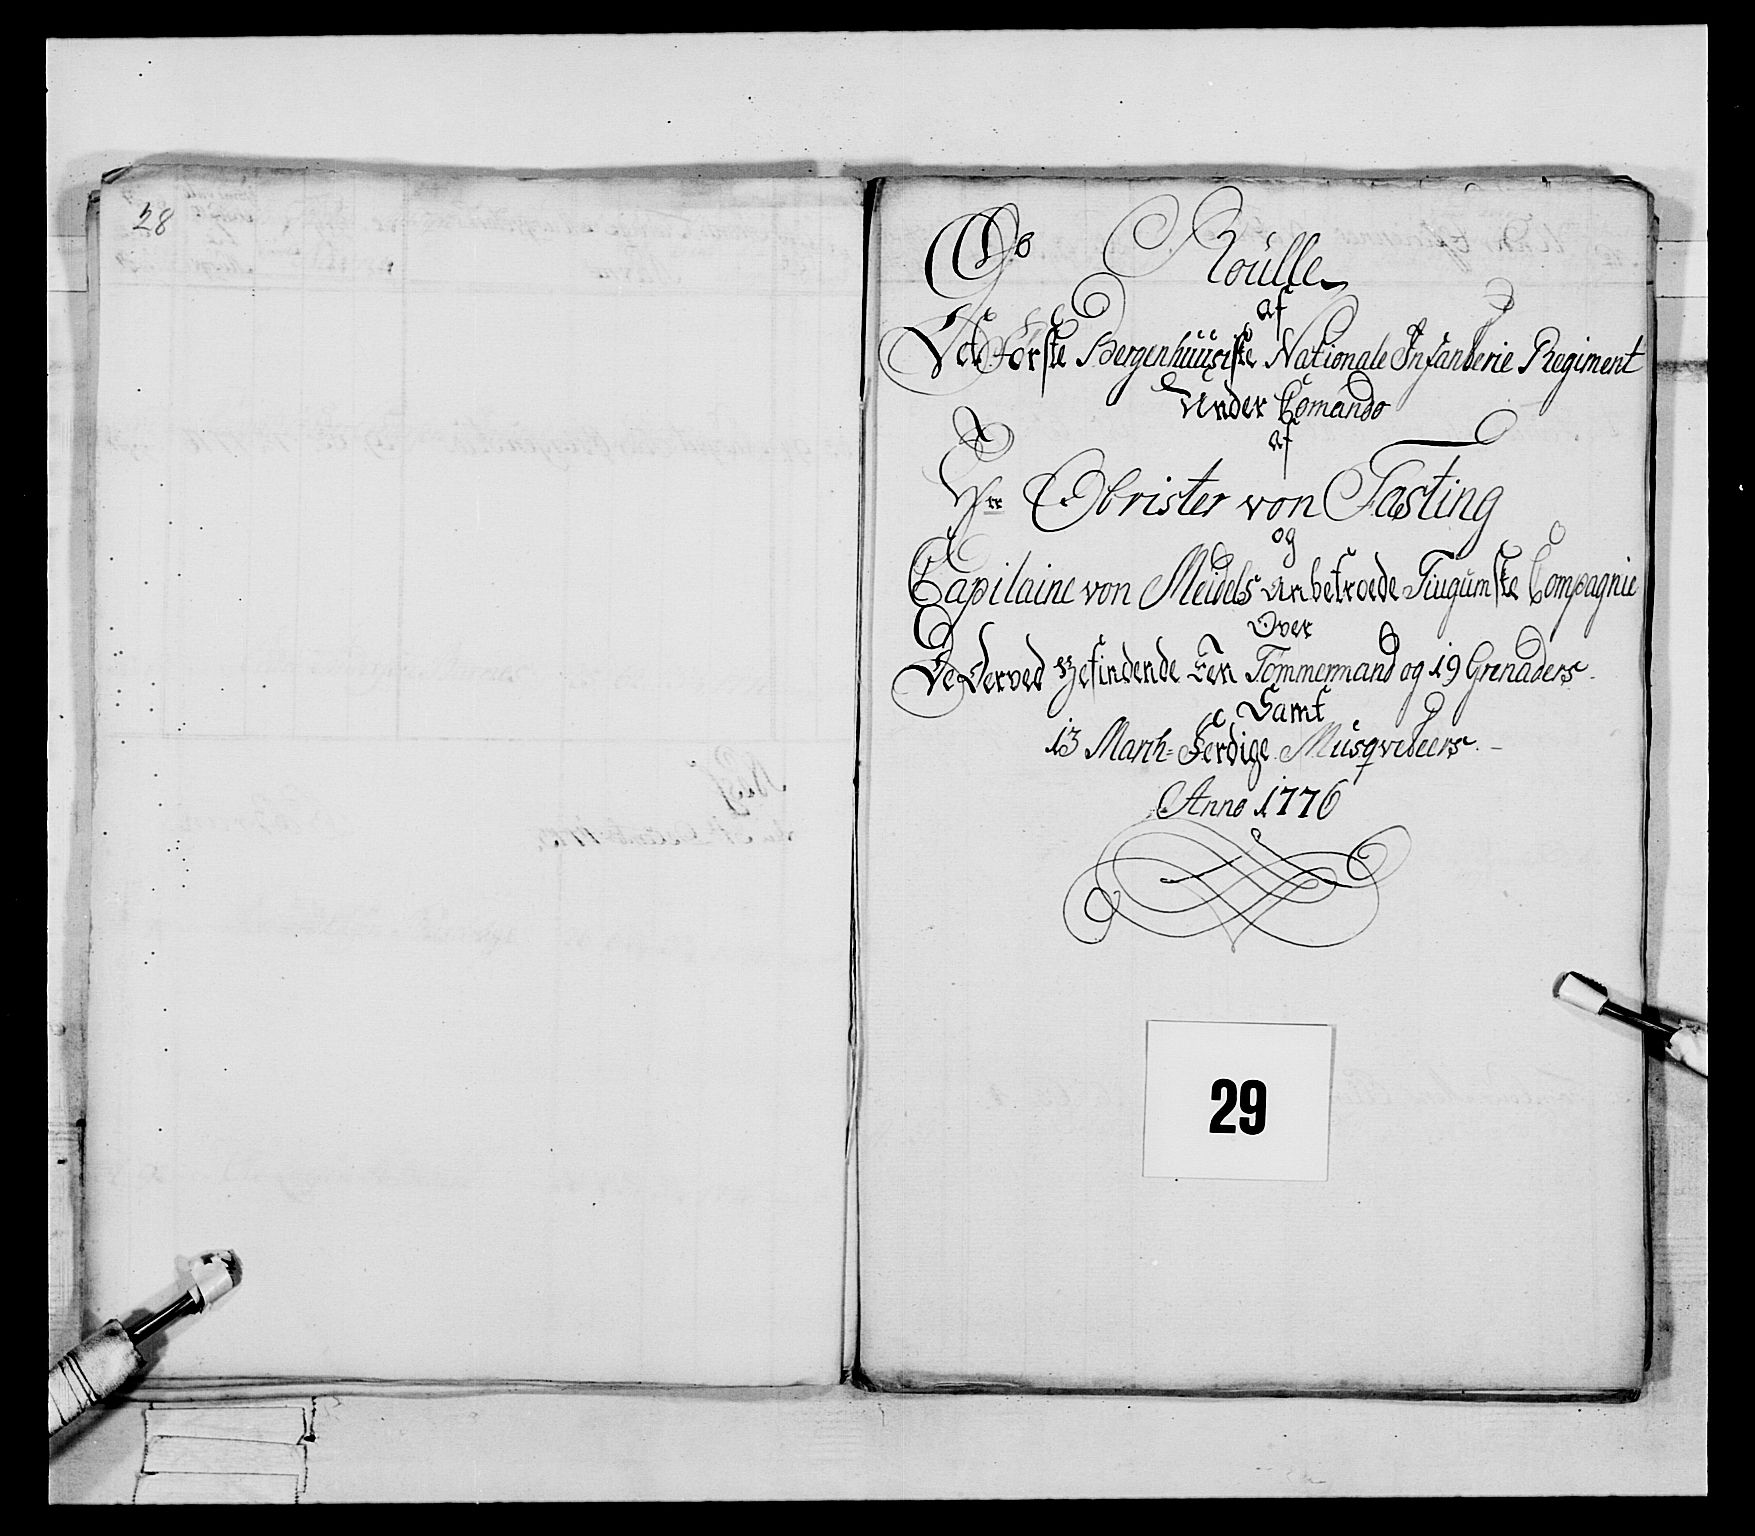 28
Roülle
af
Det Förste Bergenhüüsiske Nationale Infanterie Regiment
Under Comando
af
Hr Obrister von Fasting
og
Capitaine von Meidels anbetroede Compagnie
Over
De Derved Befindende Een Tömmermand og 19 Grenaders
Samt
13 March=Færdige Musqveteers.
Anno 1776
29